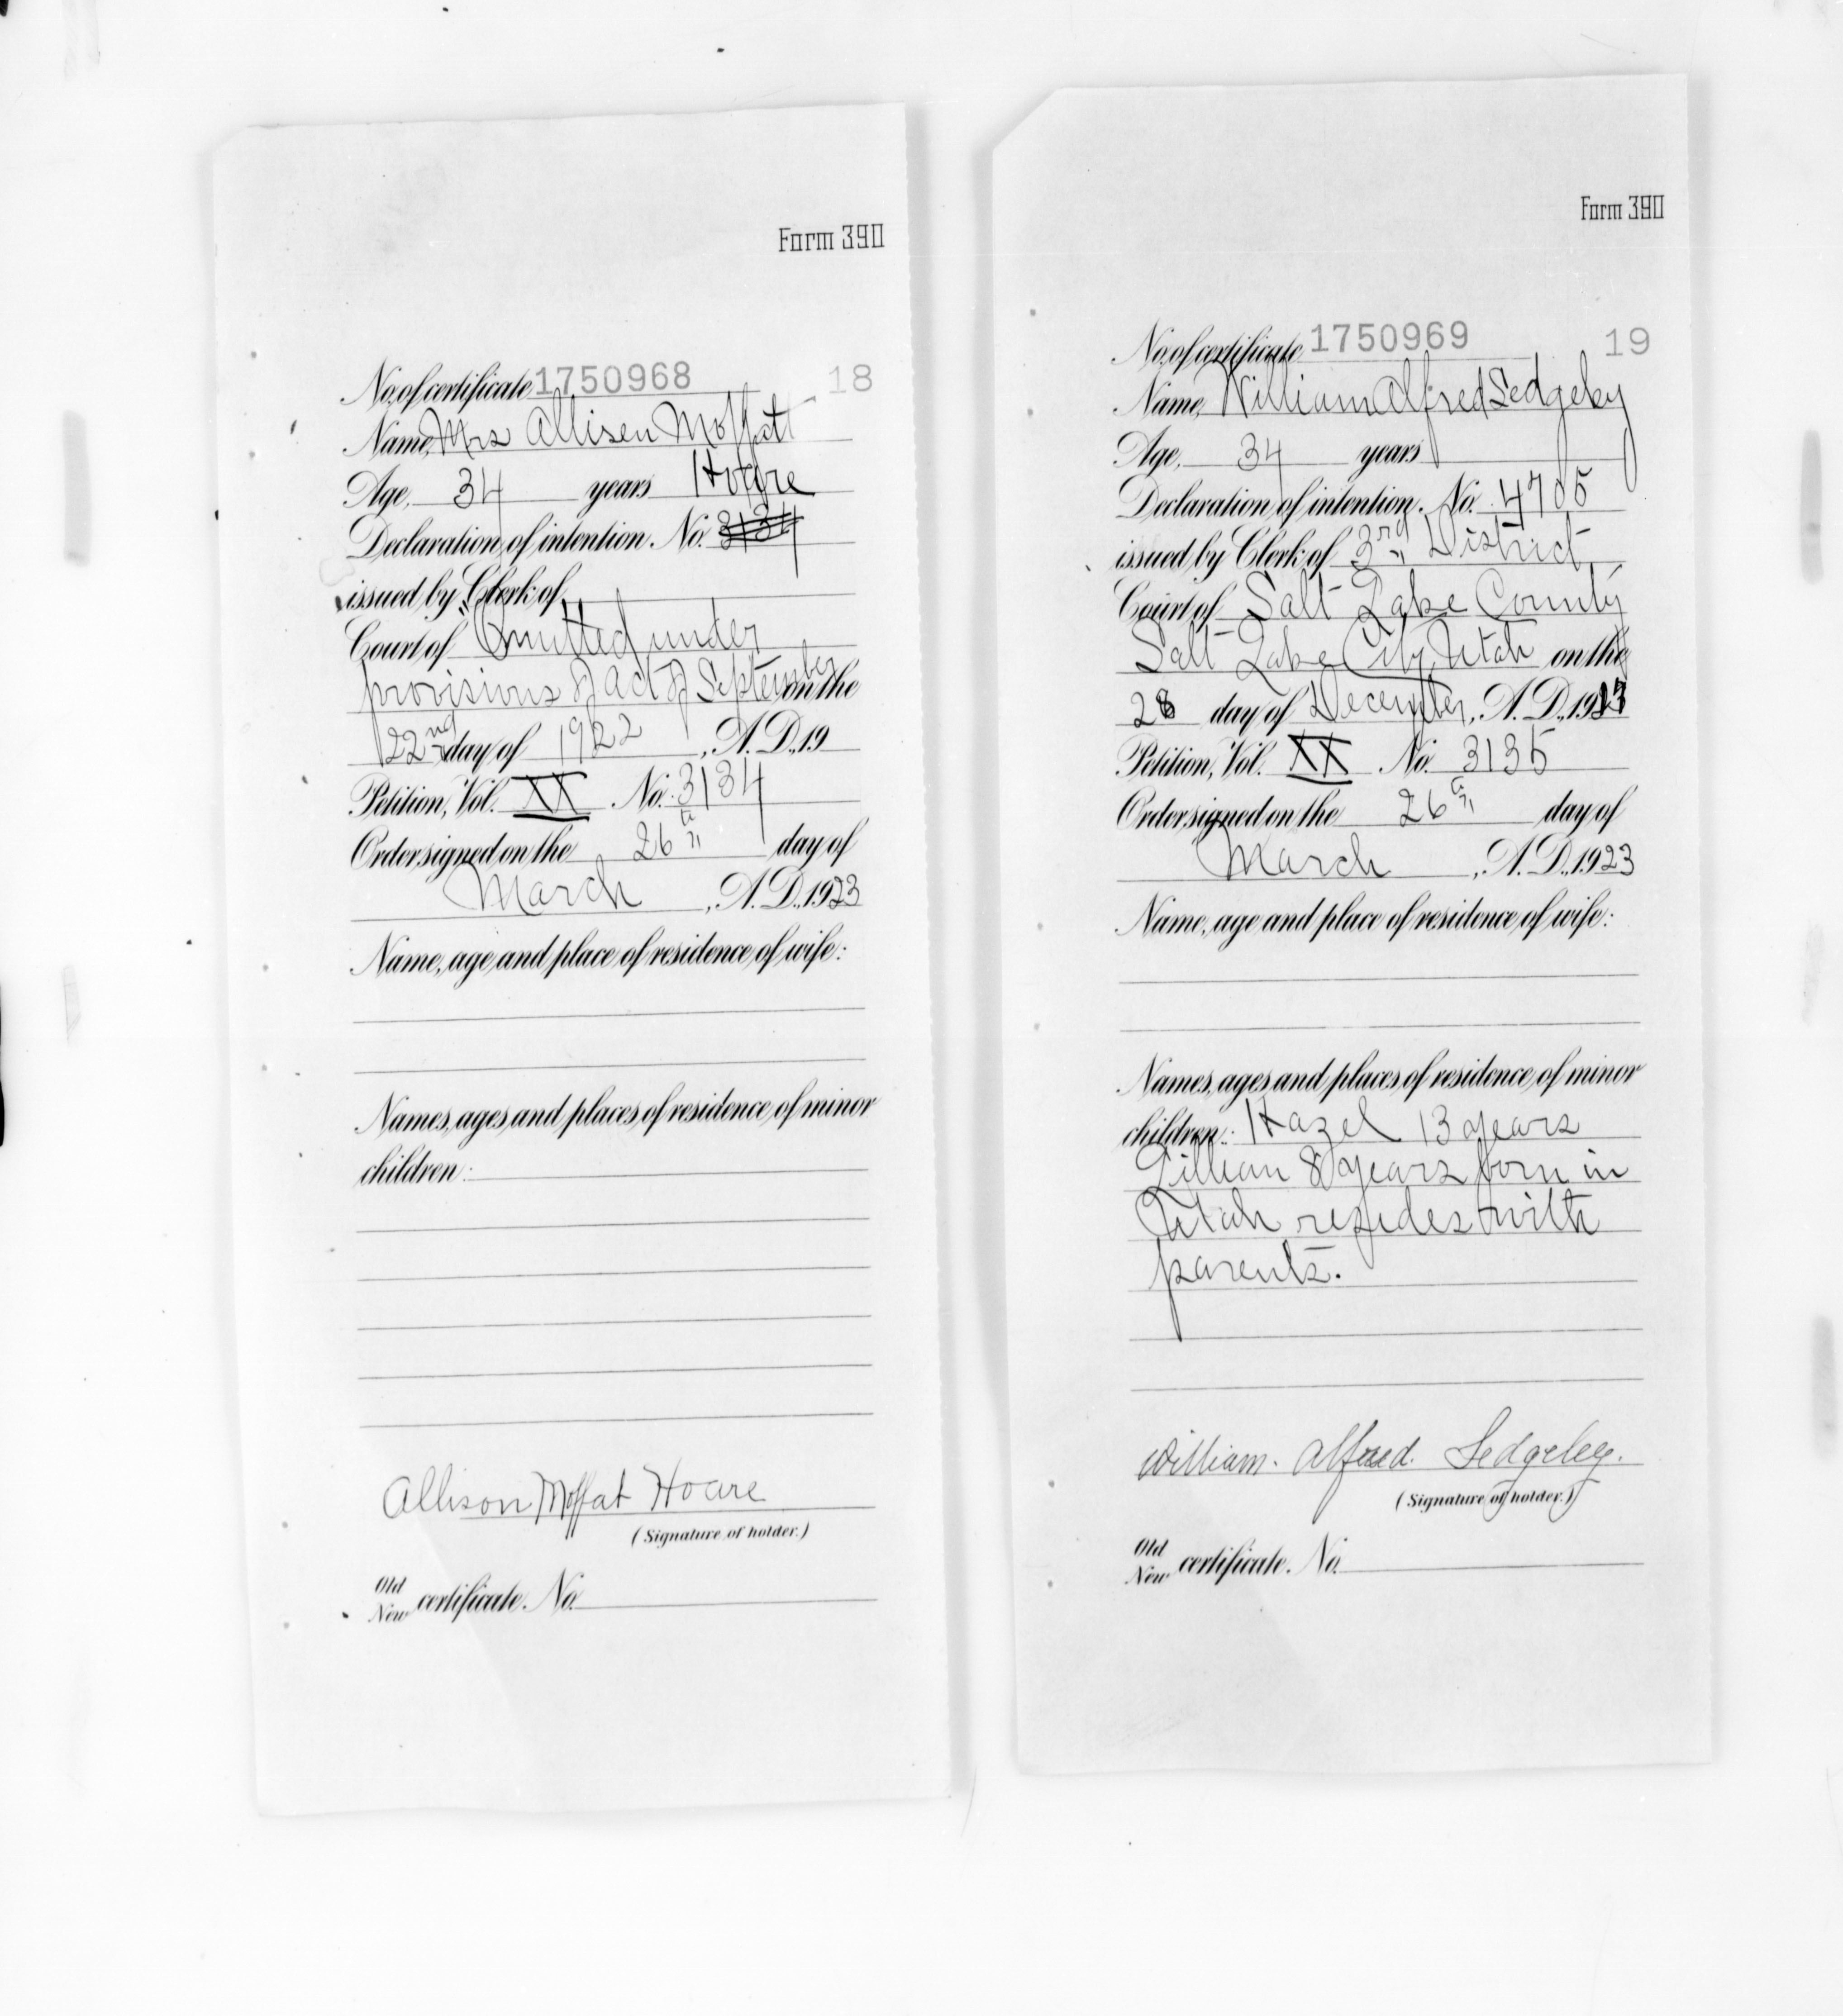 Form 390
No. of certificate 1750968 18
Name, Mrs Allisen Moffatt
Age, 34 years Hoare
Declaration of intention. No. 3134
issued by Clerk of
Court of Omitted under
provisions of Act of September on the
22nd day of 1922, A.D., 19
Petition, Vol. XX No. 3134
Order signed on the 26th day of
March, A.D., 1923
Name, age and place of residence of wife:
Names, ages and places of residence of minor
children:
Allison Moffat Hoare
(Signature of holder.)
Old
New certificate. No.
Form 390
No. of certificate 1750969 19
Name, William Alfred Sedgeley
Age, 34 years
Declaration of intention. No. 4705
issued by Clerk of 3rd District
Court of Salt Lake County
Salt Lake City, Utah on the
28 day of December, A.D., 19
Petition, Vol. XX No. 3135
Order signed on the 26th day of
March, A.D., 1923
Name, age and place of residence of wife:
Names, ages and places of residence of minor
children: Hazel 13 years
Lillian 8 years born in
Utah resides with
parents.
William. Alfred. Sedgeley.
(Signature of holder.)
Old
New certificate. No.